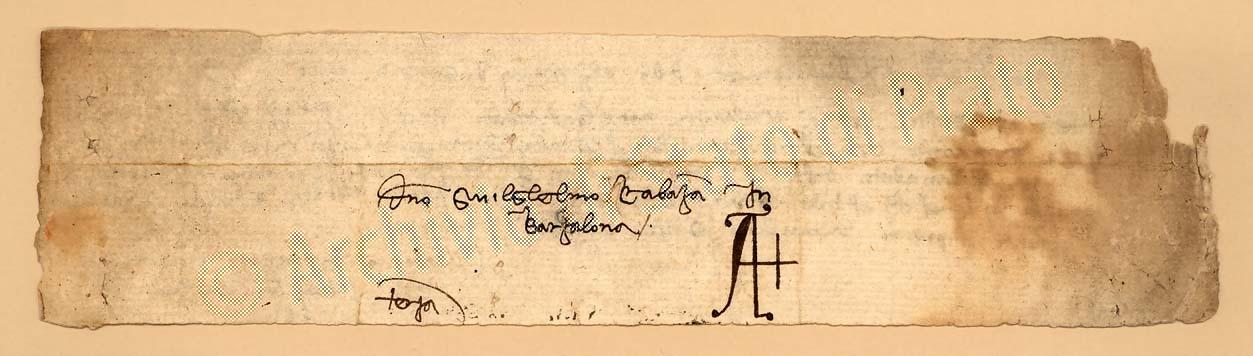 Guiglelmo Cabaza in
Barzalona
terza
© Archivio di Stato di Prato